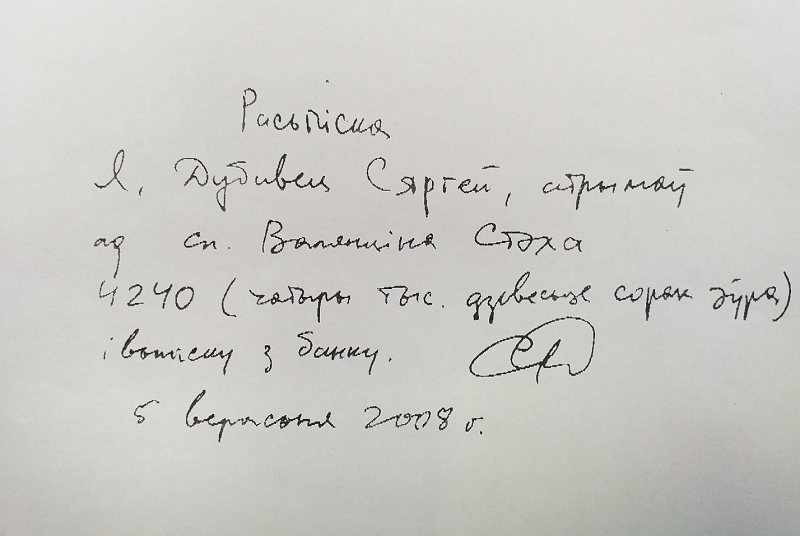 Расьпіска
Я, Дубавец Сяргей, атрымаў
ад сп. Валянціна Стэха
4240 (чатыры тыс. дзевесьце сорак эўра)
і выпіску з банку.
5 верасьня 2008 г.